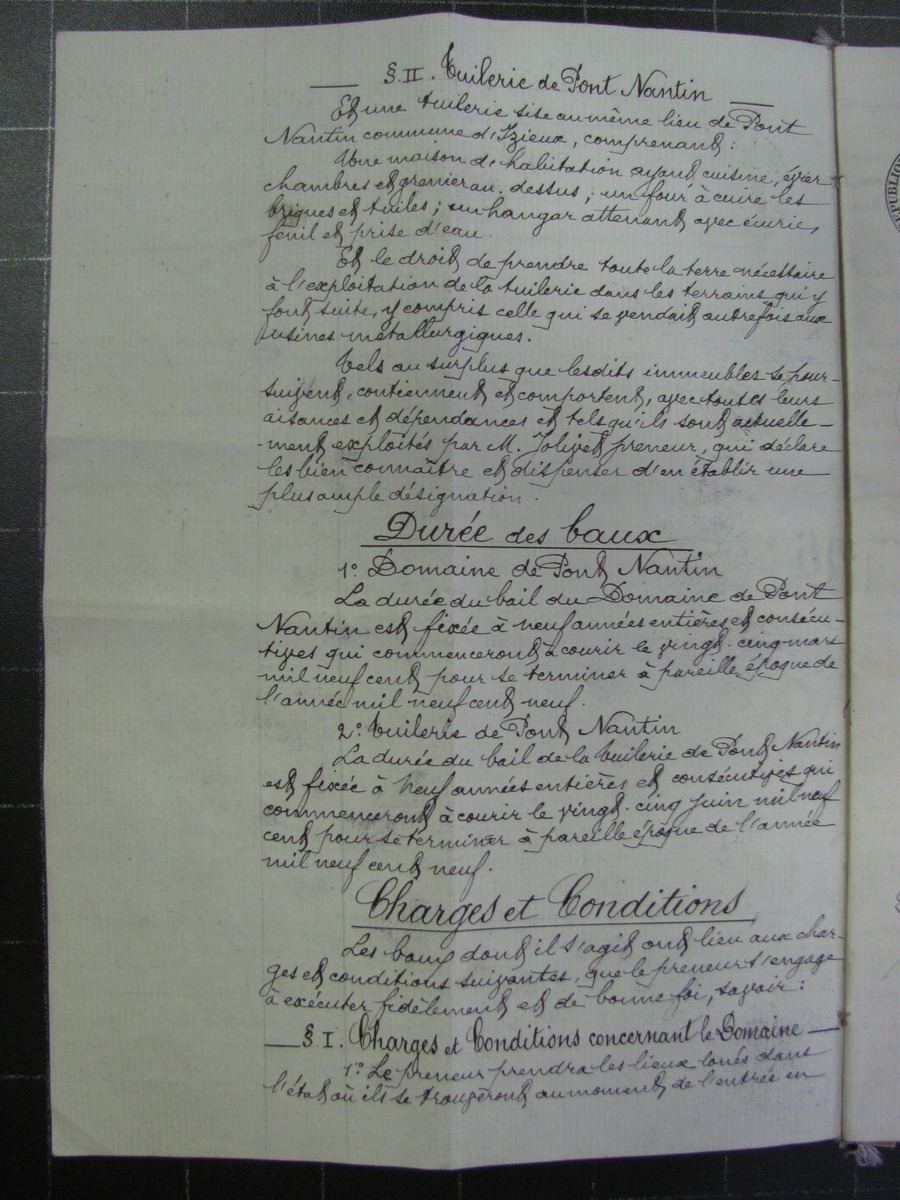 §.II. Tuilerie de Pont Nantin
Et une tuilerie sise au même lieu de Pont
Nantin commune d'Izieux, comprenant :
Une maison d'habitation ayant cuisine, évier
chambres et grenier au-dessus ; un four à cuire les
briques et tuiles ; un hangar attenant avec écurie,
fenil et prise d'eau.
Et le droit de prendre toute la terre nécessaire
à l'exploitation de la tuilerie dans les terrains qui y
font suite, y compris celle qui se vendait autrefois aux
usines métallurgiques.
Tels au surplus que lesdits immeubles se pour-
suivent, contiennent et comportent, avec toutes leurs
aisances et dépendances et tels qu'ils sont actuelle-
-ment exploités par M. Jolivet preneur, qui déclare
les bien connaître et dispenser d'en établir une
plus ample désignation.
Durée des baux
1º. Domaine de Pont Nantin
La durée du bail du Domaine de Pont
Nantin est fixée à neuf années entières et consécu-
tives qui commenceront à courir le vingt-cinq mars
mil neuf cent pour se terminer à pareille époque de
l'année mil neuf cent neuf.
2º. Tuilerie de Pont Nantin
La durée du bail de la tuilerie de Pont Nantin
est fixée à neuf années entières et consécutives qui
commenceront à courir le vingt-cinq juin mil neuf
cent pour se terminer à pareille époque de l'année
mil neuf cent neuf.
Charges et Conditions
Les baux dont il s'agit ont lieu aux char-
ges et conditions suivantes, que le preneur s'engage
à exécuter fidèlement et de bonne foi, savoir :
§.I. Charges et Conditions concernant le Domaine
1º. Le preneur prendra les lieux loués dans
l'état où ils se trouveront au moment de l'entrée en